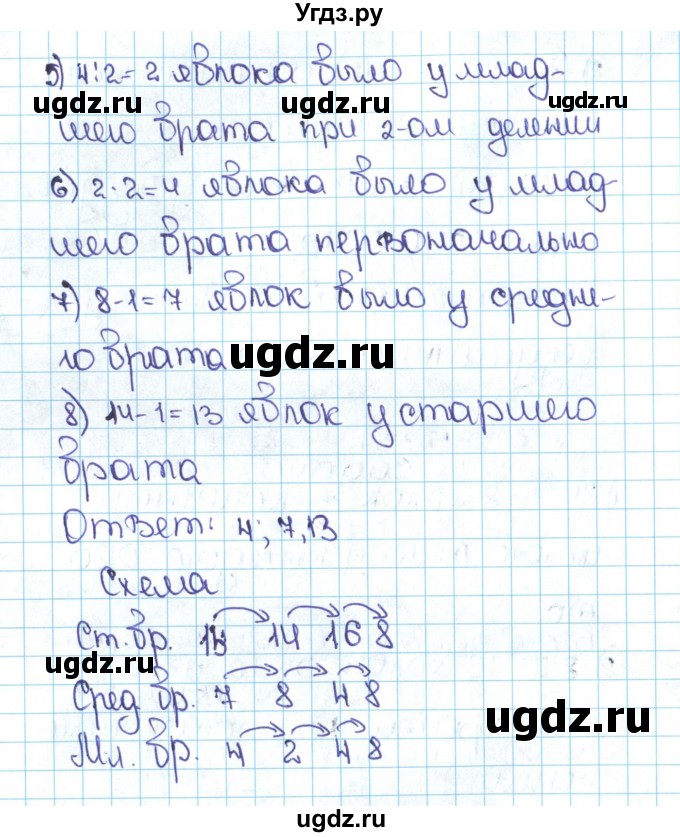 Угдз.ру
5) 4:2=2 яблока было у млад-
шего брата при 2-ом делении
6) 2·2=4 яблока было у млад-
шего брата первоначально
7) 8-1=7 яблок было у средне-
го брата
8) 14-1=13 яблок у старшего
брата
Ответ: 4; 7, 13
Схема
Ст. бр. 13 14 16 8
Сред бр. 7 8 4 8
Мл. бр. 4 2 4 8
ugdz.ru
ugdz.ru
ugdz.ru
ugdz.ru
ugdz.ru
ugdz.ru
ugdz.ru
ugdz.ru